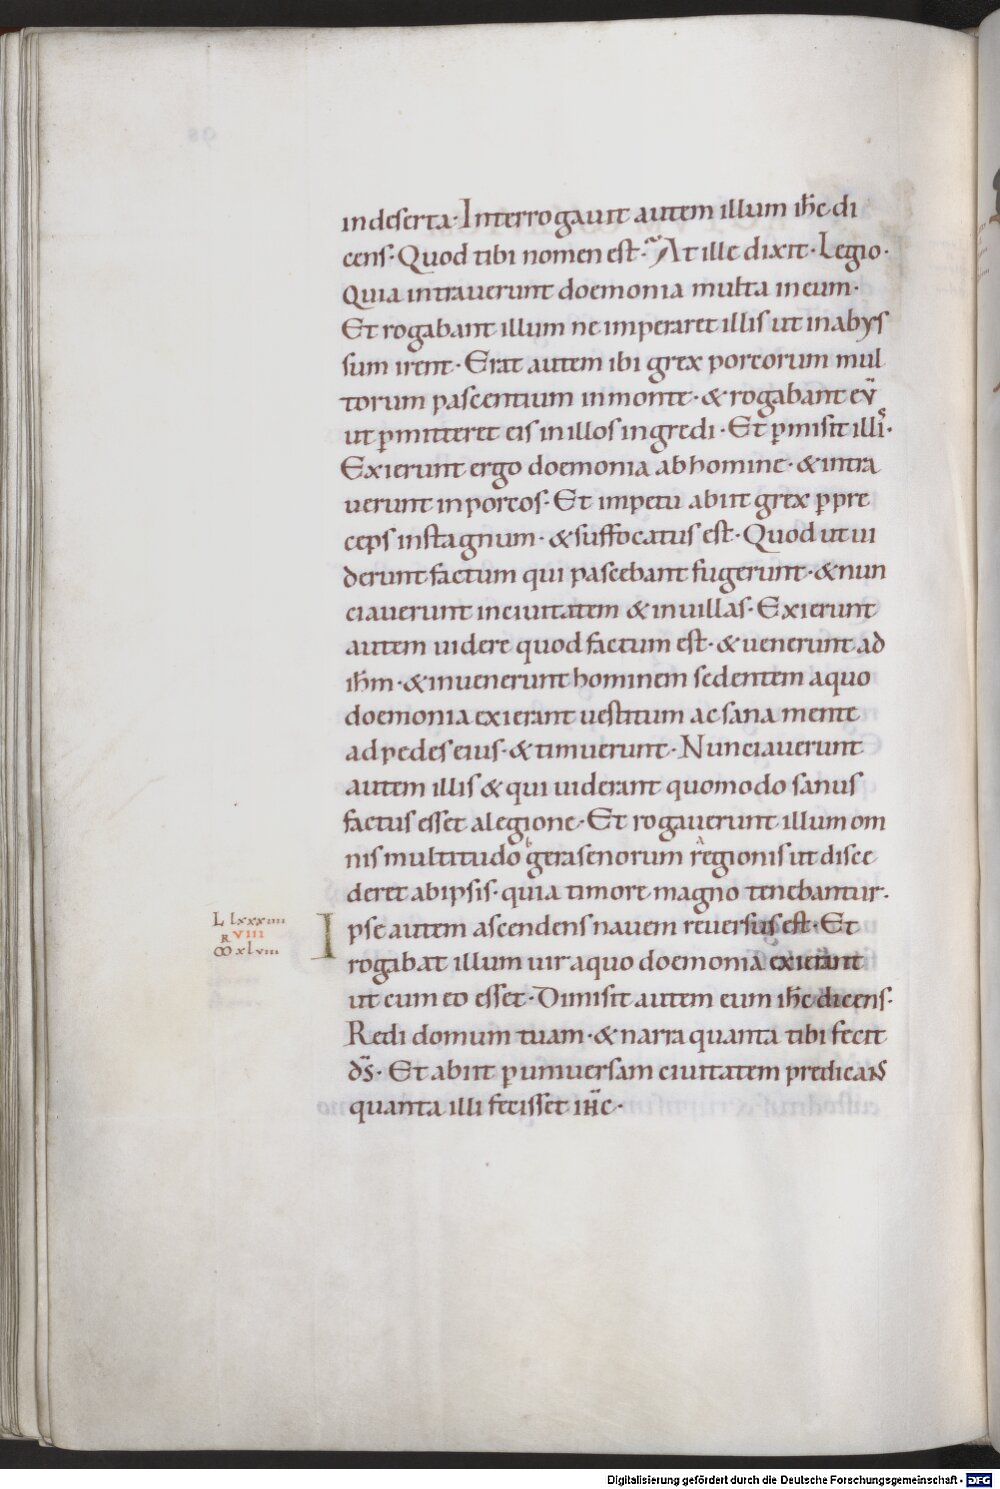 in deserta· Interrogauit autem illum ih̅c di
cens· Quod tibi nomen est· At ille dixit· Legio·
Quia intrauerunt doemonia multa in eum·
Et rogabant illum ne imperaret illis ut in abys
sum irent· Erat autem ibi grex porcorum mul
torum pascentium in monte· & rogabant eu̅
ut p̅mitteret eis in illos ingredi· Et p̅misit illis·
Exierunt ergo doemonia ab homine· & intra
uerunt in porcos· Et impetu abiit grex p̅ pre
ceps in stagnum· & suffocatus est· Quod ut ui
derunt factum qui pascebant fugerunt· & nun
ciauerunt in ciuitatem & in uillas· Exierunt
autem uidere quod factum est· & uenerunt ad
ih̅m· & inuenerunt hominem sedentem a quo
doemonia exierant uestitum ac sana mente
ad pedes eius· & timuerunt· Nunciauerunt
autem illis & qui uiderant quomodo sanus
factus esset a legione· Et rogauerunt illum om
nis multitudo gerasenorum regionis ut disce
deret ab ipsis· quia timore magno tenebantur·
L lxxxiiii
R VIII
ꝏ xlviii
Ipse autem ascendens nauem reuersus est· Et
rogabat illum uir a quo doemonia exierant
ut cum eo esset· Dimisit autem eum ih̅c dicens·
Redi domum tuam· & narra quanta tibi fecit
d̅s· Et abiit p̅ uniuersam ciuitatem predicans
quanta illi fecisset ih̅c·
Digitalisierung gefördert durch die Deutsche Forschungsgemeinschaft - DFG